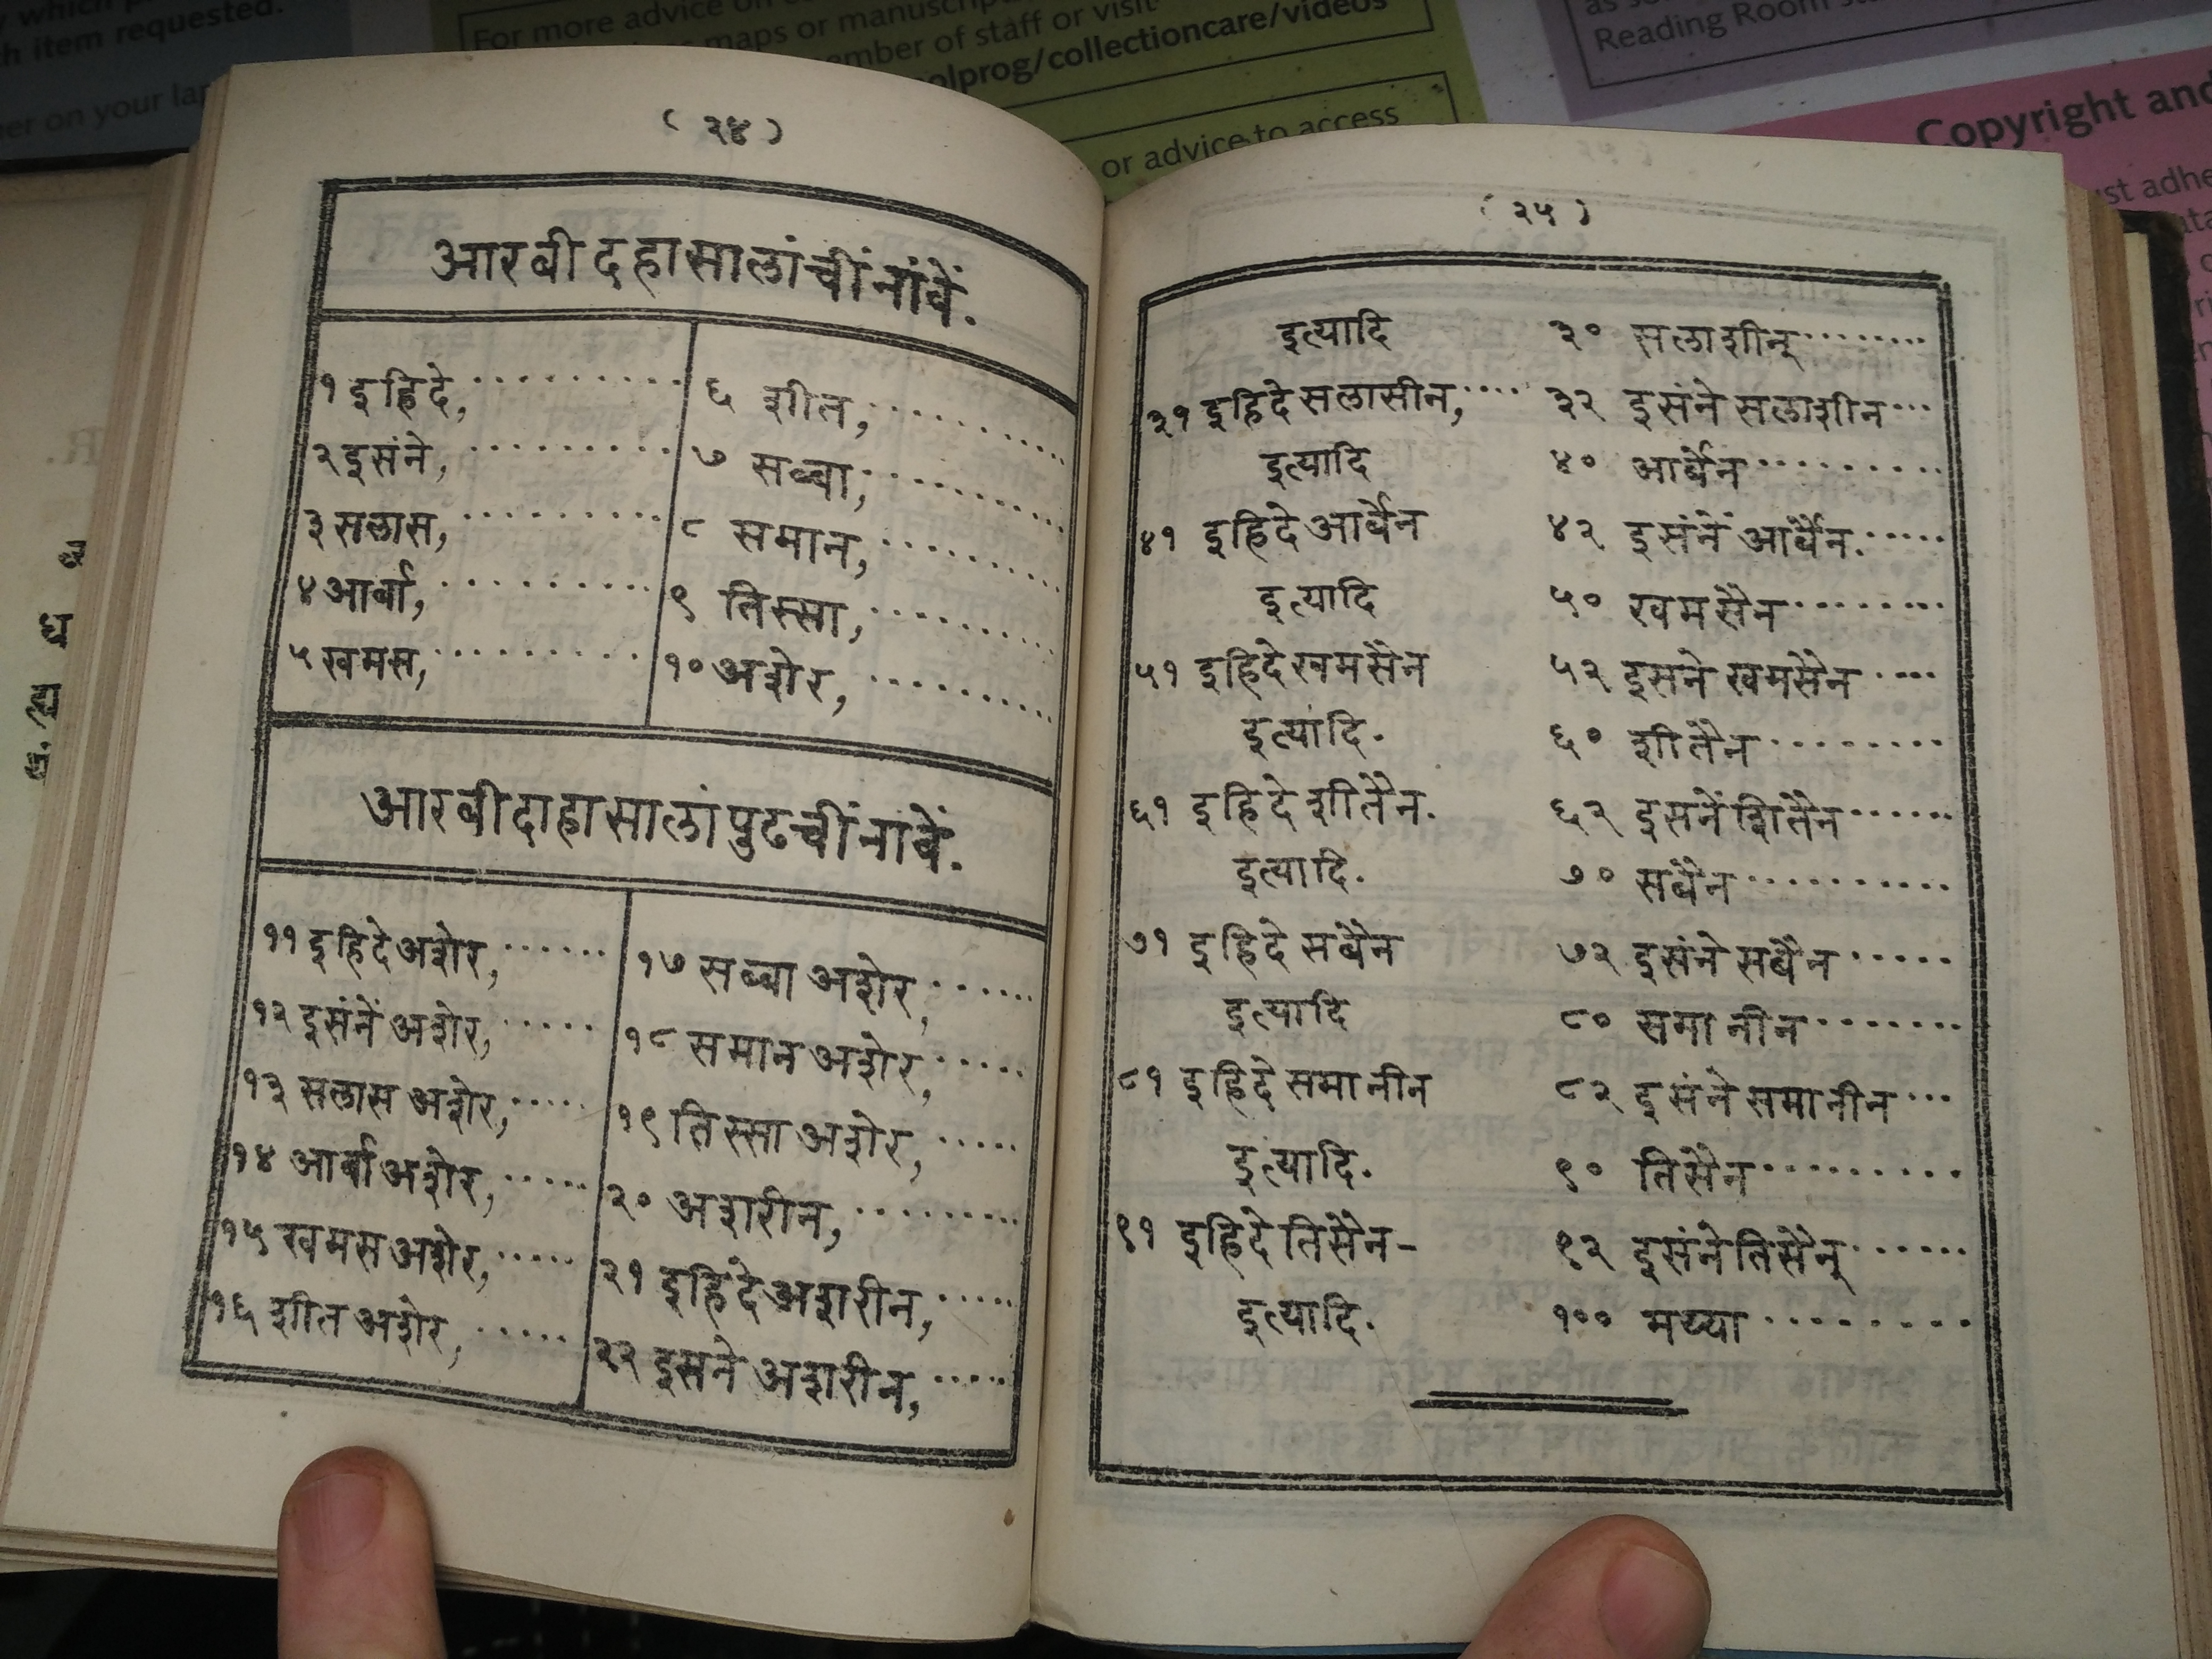 For more advice on
maps or manuscrip
member of staff or visit
olprog/collectioncare/videos
or advice to access
h item requested.
er on your lap
Reading Room
Copyright and
ust adhe
( २४ )
आरबी दहा सालांचीं नांवें.
१ इहिदे, ..........
२ इसंने, ..........
३ सलास, ..........
४ आर्बा, ..........
५ खमस, ..........
६ शीत, ..........
७ सब्बा, ..........
८ समान, ..........
९ तिस्सा, ..........
१० अशेर, ..........
आरबी दाहा सालां पुढचीं नांवें.
११ इहिदे अशेर, ......
१२ इसंनें अशेर, .....
१३ सलास अशेर, .....
१४ आर्बा अशेर, .....
१५ खमस अशेर, .....
१६ शीत अशेर, .....
१७ सब्बा अशेर, ......
१८ समान अशेर, .....
१९ तिस्सा अशेर, .....
२० अशरीन, .........
२१ इहिदे अशरीन, .....
२२ इसने अशरीन, .....
( २५ )
इत्यादि ३० सलाशीन् ........
३१ इहिदे सलासीन, .... ३२ इसंने सलाशीन ...
इत्यादि ४० आर्बैन ..........
४१ इहिदे आर्बैन ४२ इसंनें आर्बैन. .....
इत्यादि ५० खमसैन .........
५१ इहिदे खमसैन ५२ इसने खमसैन ....
इत्यादि. ६० शीतैन .........
६१ इहिदे शीतैन. ६२ इसनें शितैन ......
इत्यादि. ७० सबैन ...........
७१ इहिदे सबैन ७२ इसंने सबैन .....
इत्यादि ८० समानीन ........
८१ इहिदे समानीन ८२ इसंने समानीन ...
इत्यादि. ९० तिसैन ..........
९१ इहिदे तिसैन - ९२ इसंने तिसैन् ......
इत्यादि. १०० मय्या ..........